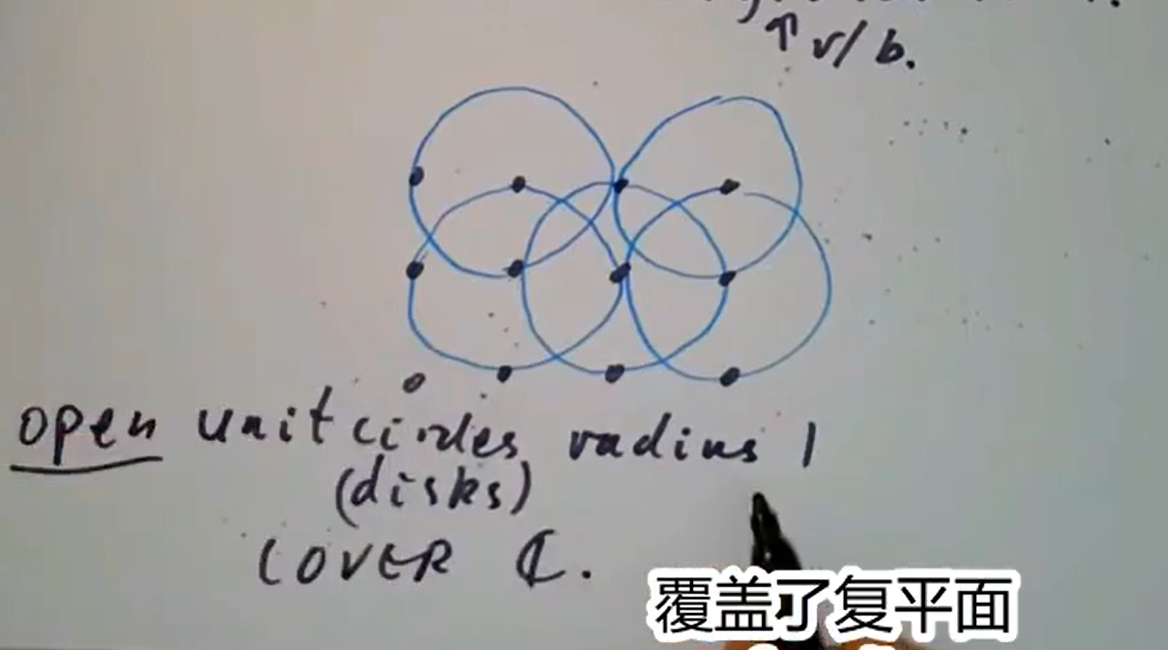 ↑ r/b.
open unit circles radius 1
(disks)
COVER ℂ.
覆盖了复平面